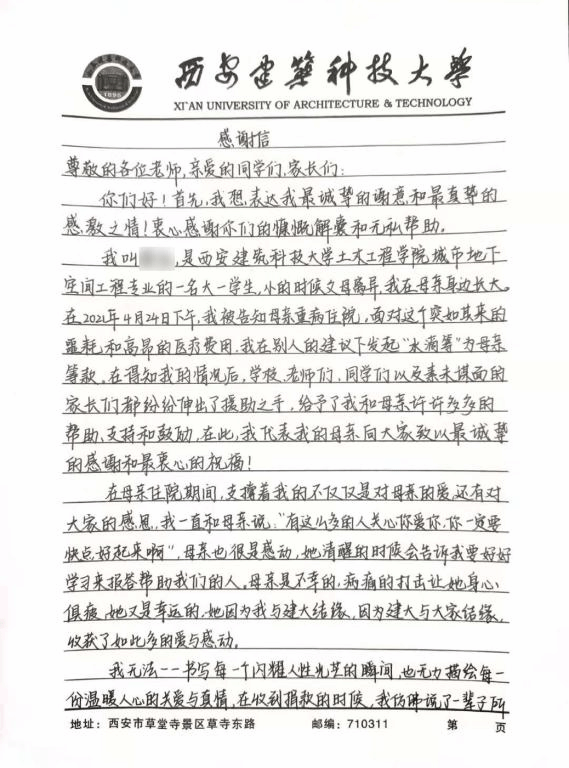 西安建筑科技大学
XI'AN UNIVERSITY OF ARCHITECTURE & TECHNOLOGY
1895
感谢信
尊敬的各位老师,亲爱的同学们,家长们:
你们好!首先,我想表达我最诚挚的谢意和最真挚的
感激之情!衷心感谢你们的慷慨解囊和无私帮助。
我叫 ,是西安建筑科技大学土木工程学院城市地下
空间工程专业的一名大一学生,小的时候父母离异,我在母亲身边长大。
在2021年4月24日下午,我被告知母亲重病住院,面对这个突如其来的
噩耗和高昂的医疗费用,我在别人的建议下发起“水滴筹”为母亲
筹款,在得知我的情况后,学校、老师们,同学们以及素未谋面的
家长们都纷纷伸出了援助之手,给予了我和母亲许许多多的
帮助、支持和鼓励,在此,我代表我的母亲向大家致以最诚挚
的感谢和最衷心的祝福!
在母亲住院期间,支撑着我的不仅仅是对母亲的爱,还有对
大家的感恩,我一直和母亲说:“有这么多的人关心你爱你,你一定要
快点好起来啊”,母亲也很是感动,她清醒的时候会告诉我要好好
学习来报答帮助我们的人。母亲是不幸的,病痛的打击让她身心
俱疲,她又是幸运的,她因为我与建大结缘,因为建大与大家结缘,
收获了如此多的爱与感动。
我无法一一书写每一个闪耀人性光芒的瞬间,也无力描绘每一
份温暖人心的关爱与真情,在收到捐款的时候,我仿佛说了一辈子所
地址:西安市草堂寺景区草寺东路 邮编:710311 第 页